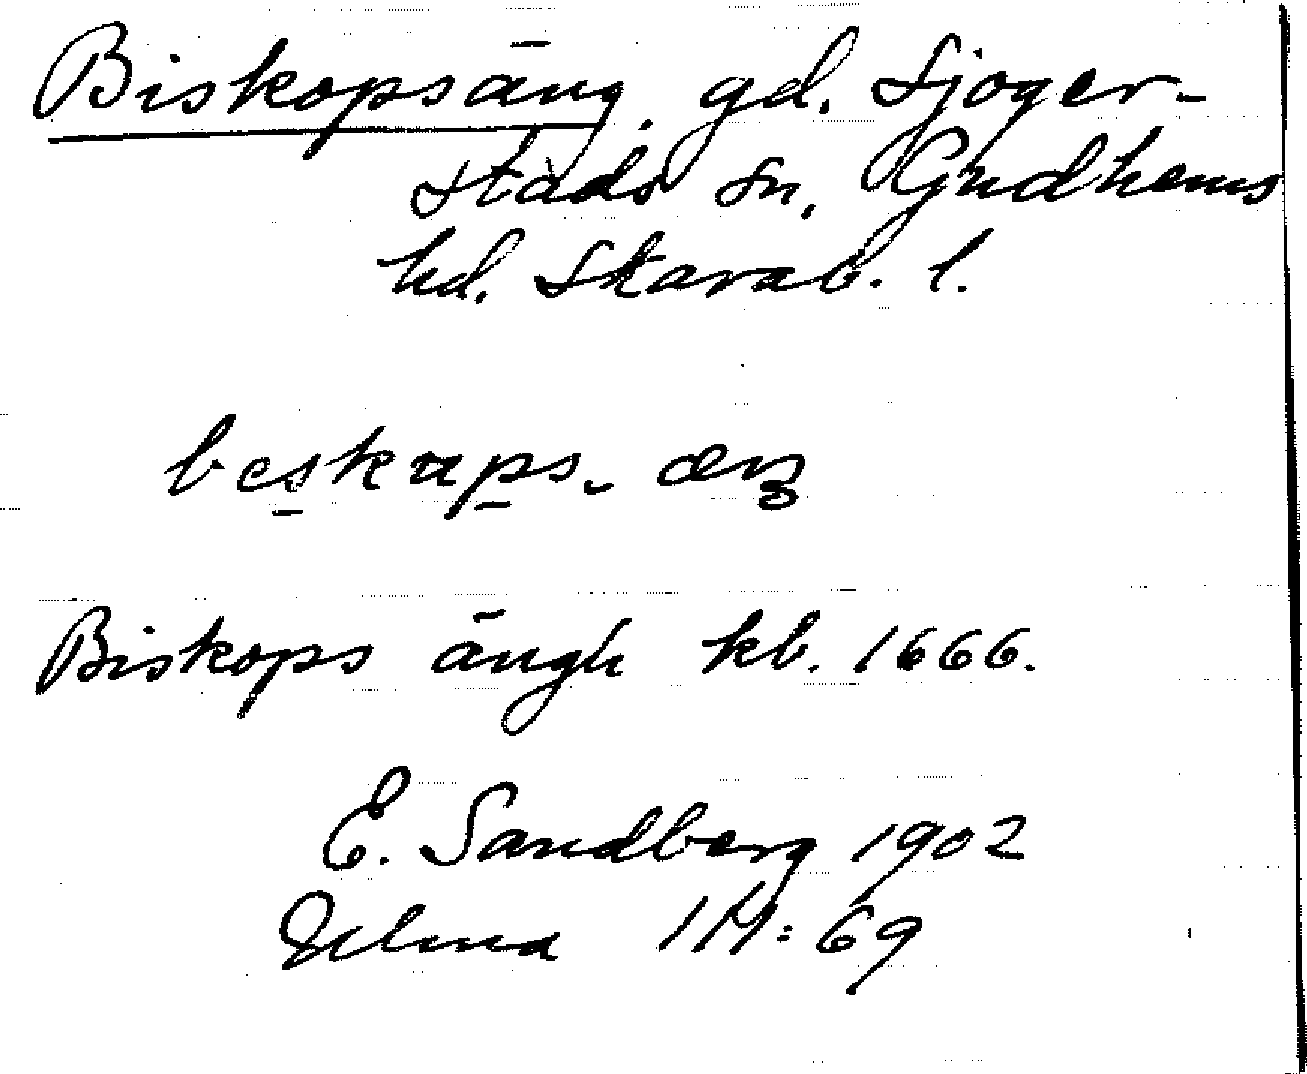 Biskopsäng, gd. Sjoger-
stads sn, Gudhems
hd. Skarab. l.
beskaps- æŋ
Biskops ängh kb. 1666.
E. Sandberg 1902
69